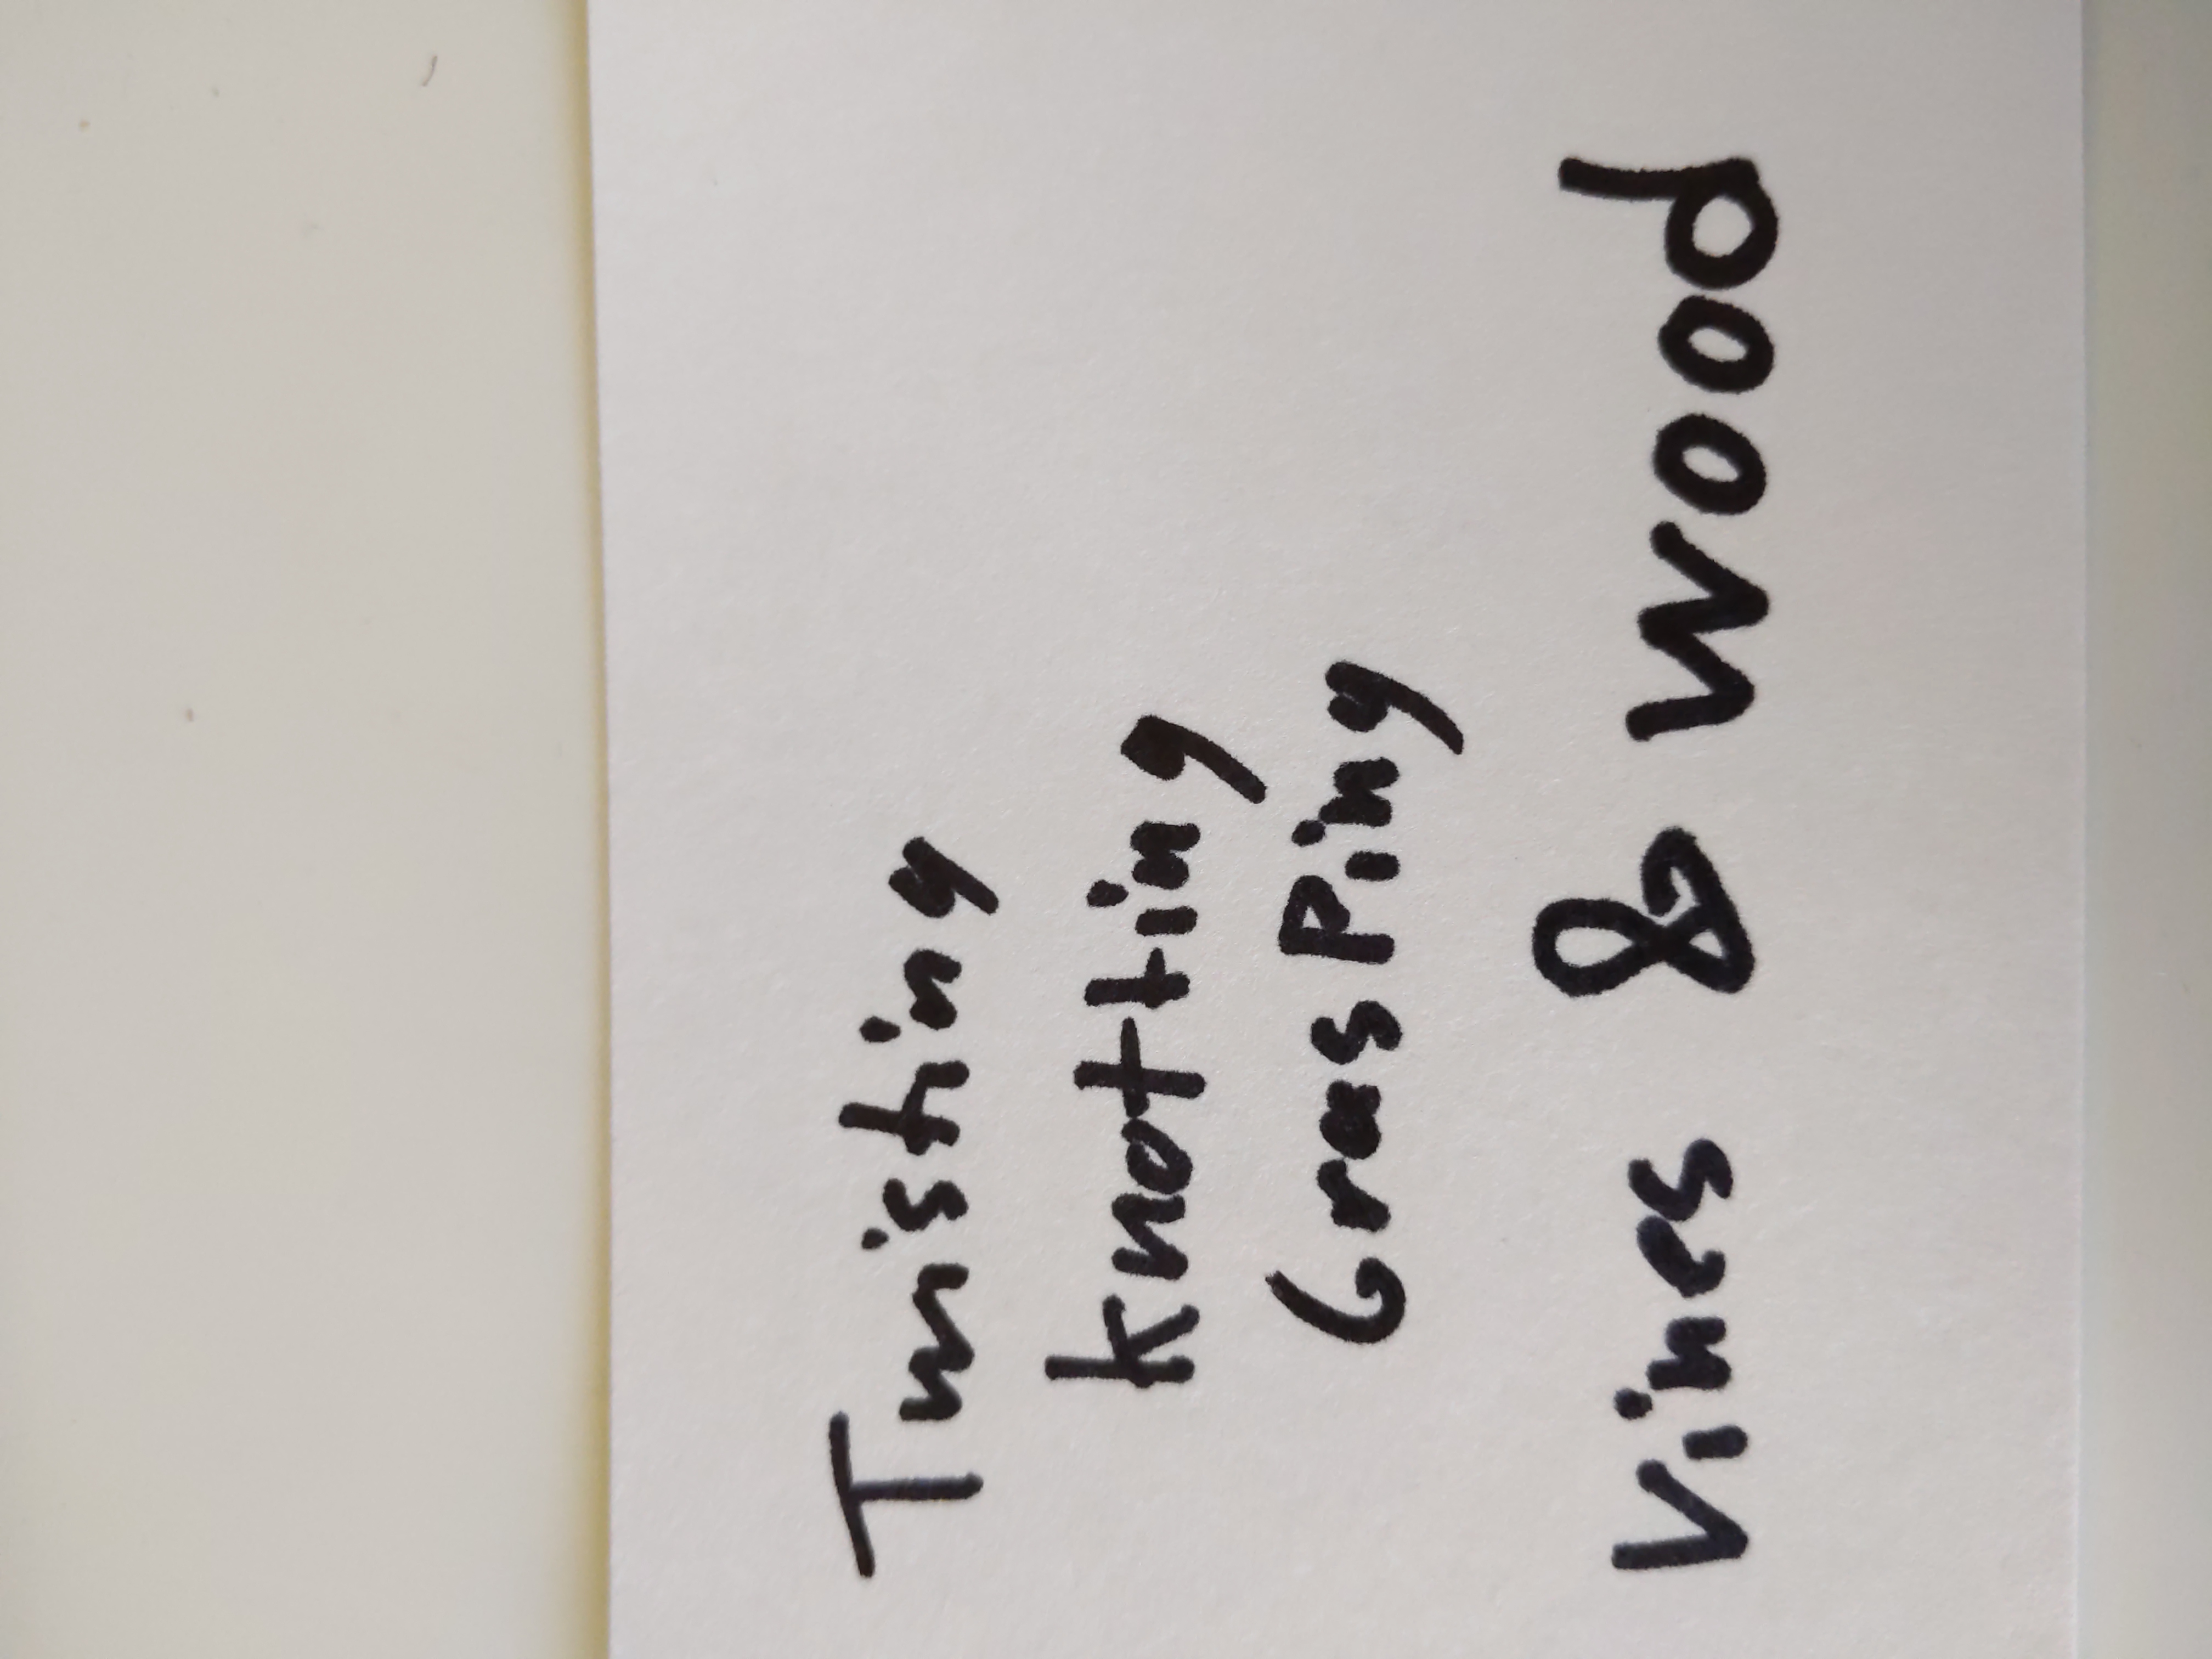 Twisting
knotting
GrasPing
Vines & wood